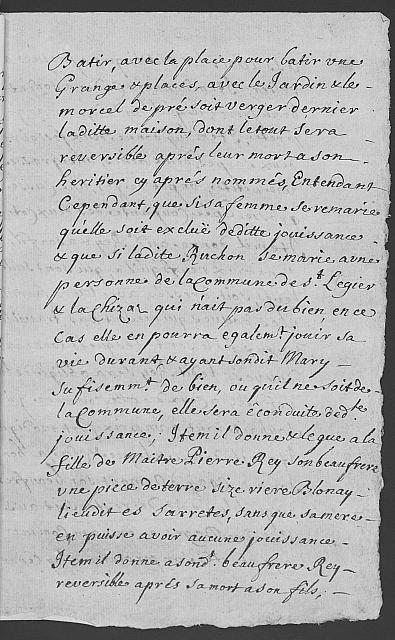 Batir, avec la place pour batir une
Grange & places, avec le Jardin & le
morcel de pré soit verger dernier
laditte maison, dont le tout sera
reversible aprés leur mort a son
heritier cy aprés nommés, Entendant
Cependant, que si sa femme se remarie
qu'elle soit excluë deditte jouissance
& que si ladite Ruchon se marie a une
personne de la Commune de st. Legier
& la Chizaz qui n'ait pas du bien en ce
Cas elle en pourra égalemt. jouir sa
vie durant, & ayant sondit Mary
sufisemmt. de bien, ou qu'il ne soit de
la Commune, elle sera éconduite dedte.
jouissance; Item il donne & legue a la
fille de Maitre Pierre Rey son beau frere
une piece de terre size riere Blonay
lieudit es sarretes, sans que sa mere
en puisse avoir aucune jouissance
Item il donne a sondt. beau frere Rey
reversible aprés sa mort a son fils,